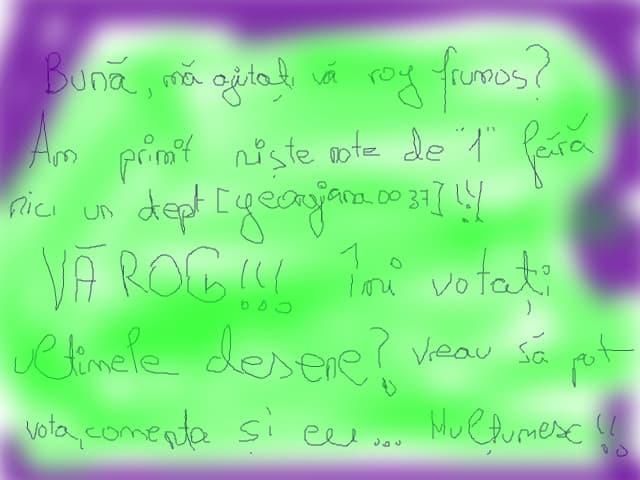 Bună, mă ajutați vă rog frumos?
Am primit niște note de "1" fără
nici un drept [georgiana0037]!!
VĂ ROG!!! Îmi votați
ultimele desene? Vreau să pot
vota, comenta și eu... Mulțumesc!!